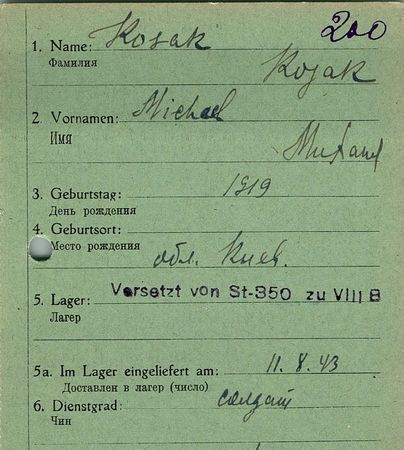 200
1. Name: Kosak
Фамилия
Kozak
2. Vornamen: Michael
Имя
Михаил
3. Geburtstag: 1919
День рождения
4. Geburtsort:
Место рождения
обл. Киев.
5. Lager: Versetzt von St-350 zu VIII B
Лагер
5a. Im Lager eingeliefert am: 11. 8. 43
Доставлен в лагер (число)
6. Dienstgrad: солдат
Чин